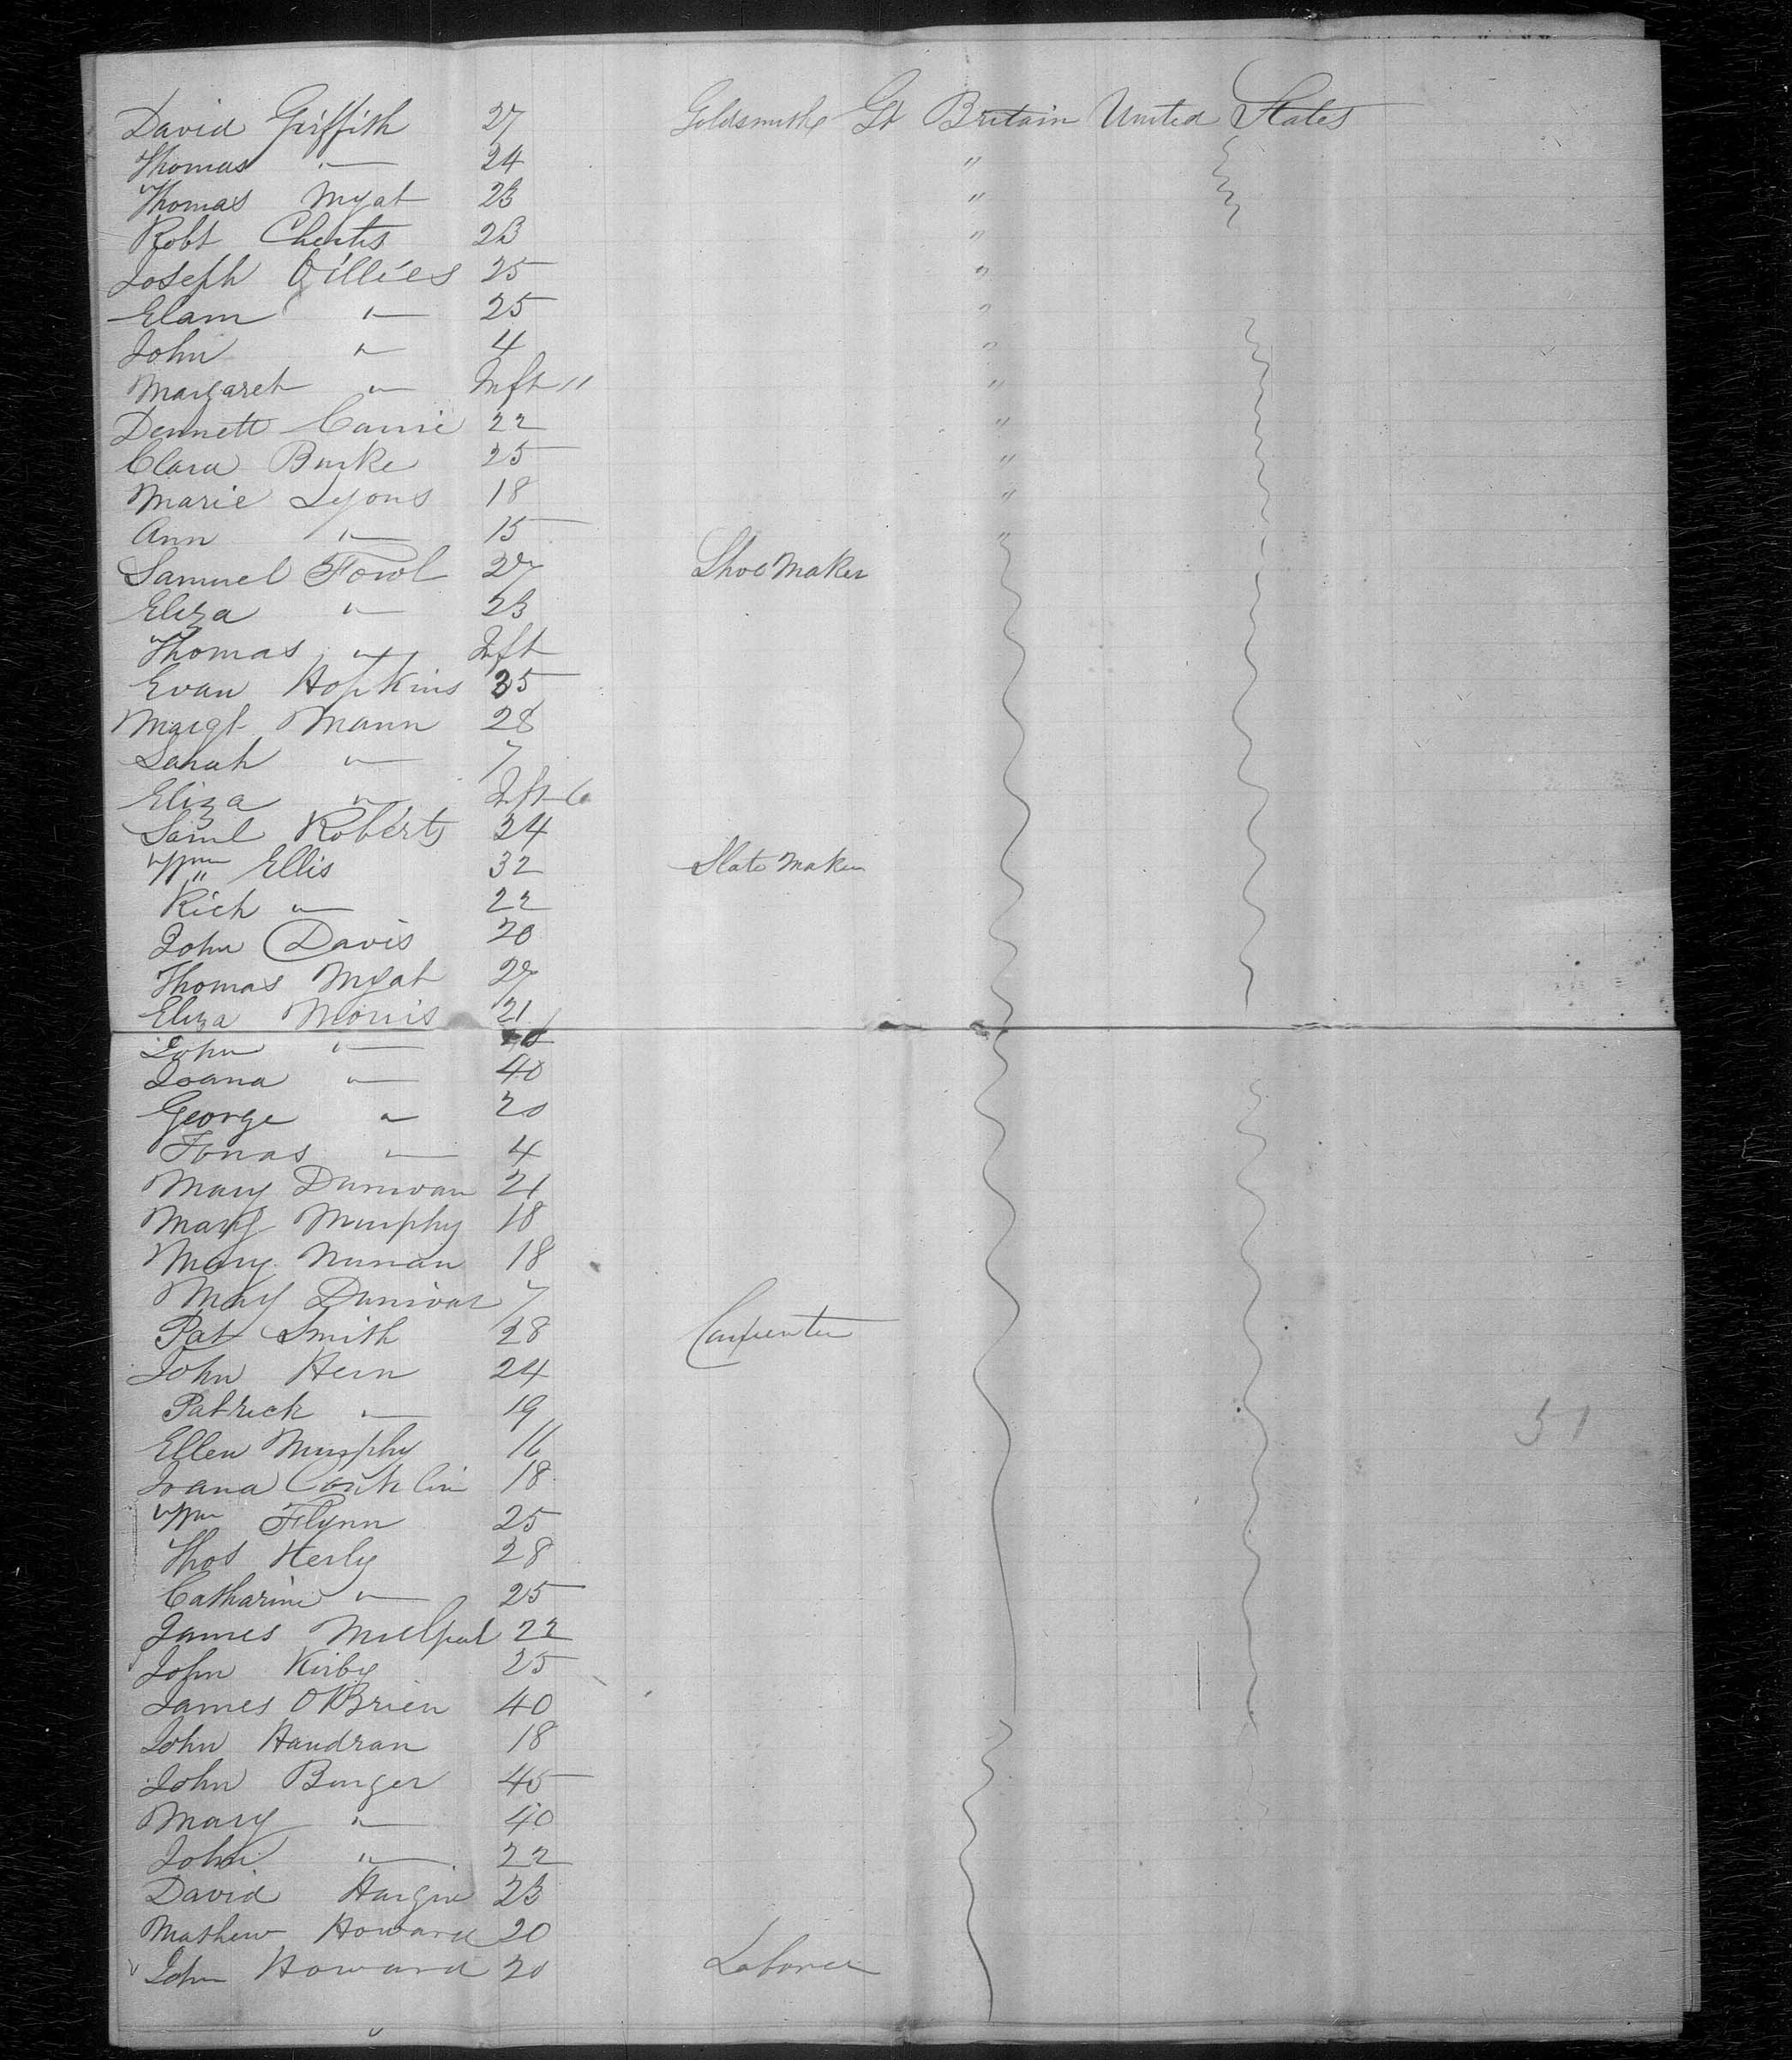 David Griffith 27 Goldsmiths Gt Britain United States
Thomas " 24 "
Thomas Myat 23 "
Robt 23 "
Joseph Gillies 25 "
Elam " 25 "
John " 4 "
Margaret " Inft 11 "
Dennett Carrie 22 "
Clara Burke 25 "
Marie Lyons 18 "
Ann " 15 "
Samuel Fowl 27 Shoe Maker
Eliza " 23
Thomas " Inft
Evan Hopkins 35
Margt Mann 28
Sarah " 7
Eliza " Inft 6
Saml Roberts 24
Wm Ellis 32 Slate Maker
Rich " 22
John Davis 20
Thomas Myat 27
Eliza Morris 21
John "
Joana " 40
George " 20
Jonas " 4
Mary Dunivan 21
Mary Murphy 18
Mary Nunan 18
Mary Dunivan 7
Pat Smith 28 Carpenter
John Hern 24
Patrick " 19
Ellen Murphy 16
Joana Conklin 18
Wm Flynn 25
Thos Herly 28
Catharine " 25
James 22
John Kirby 25
James OBrien 40
John Handran 18
John Burger 45
Mary " 40
John " 22
David 23
Mathew Howard 20
John Howard 20 Laborer
51